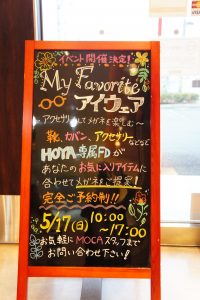 イベント開催決定!
My Favorite
アイウェア
～アクセサリーとしてメガネを楽しむ～
靴、カバン、アクセサリーなどなど
HOYA専属FDが
あなたのお気に入りアイテムに
合わせてメガネをご提案!
完全ご予約制!!
5/17(日) 10:00
～17:00
お気軽にMOCAスタッフまで
お問い合わせ下さい!
VISA